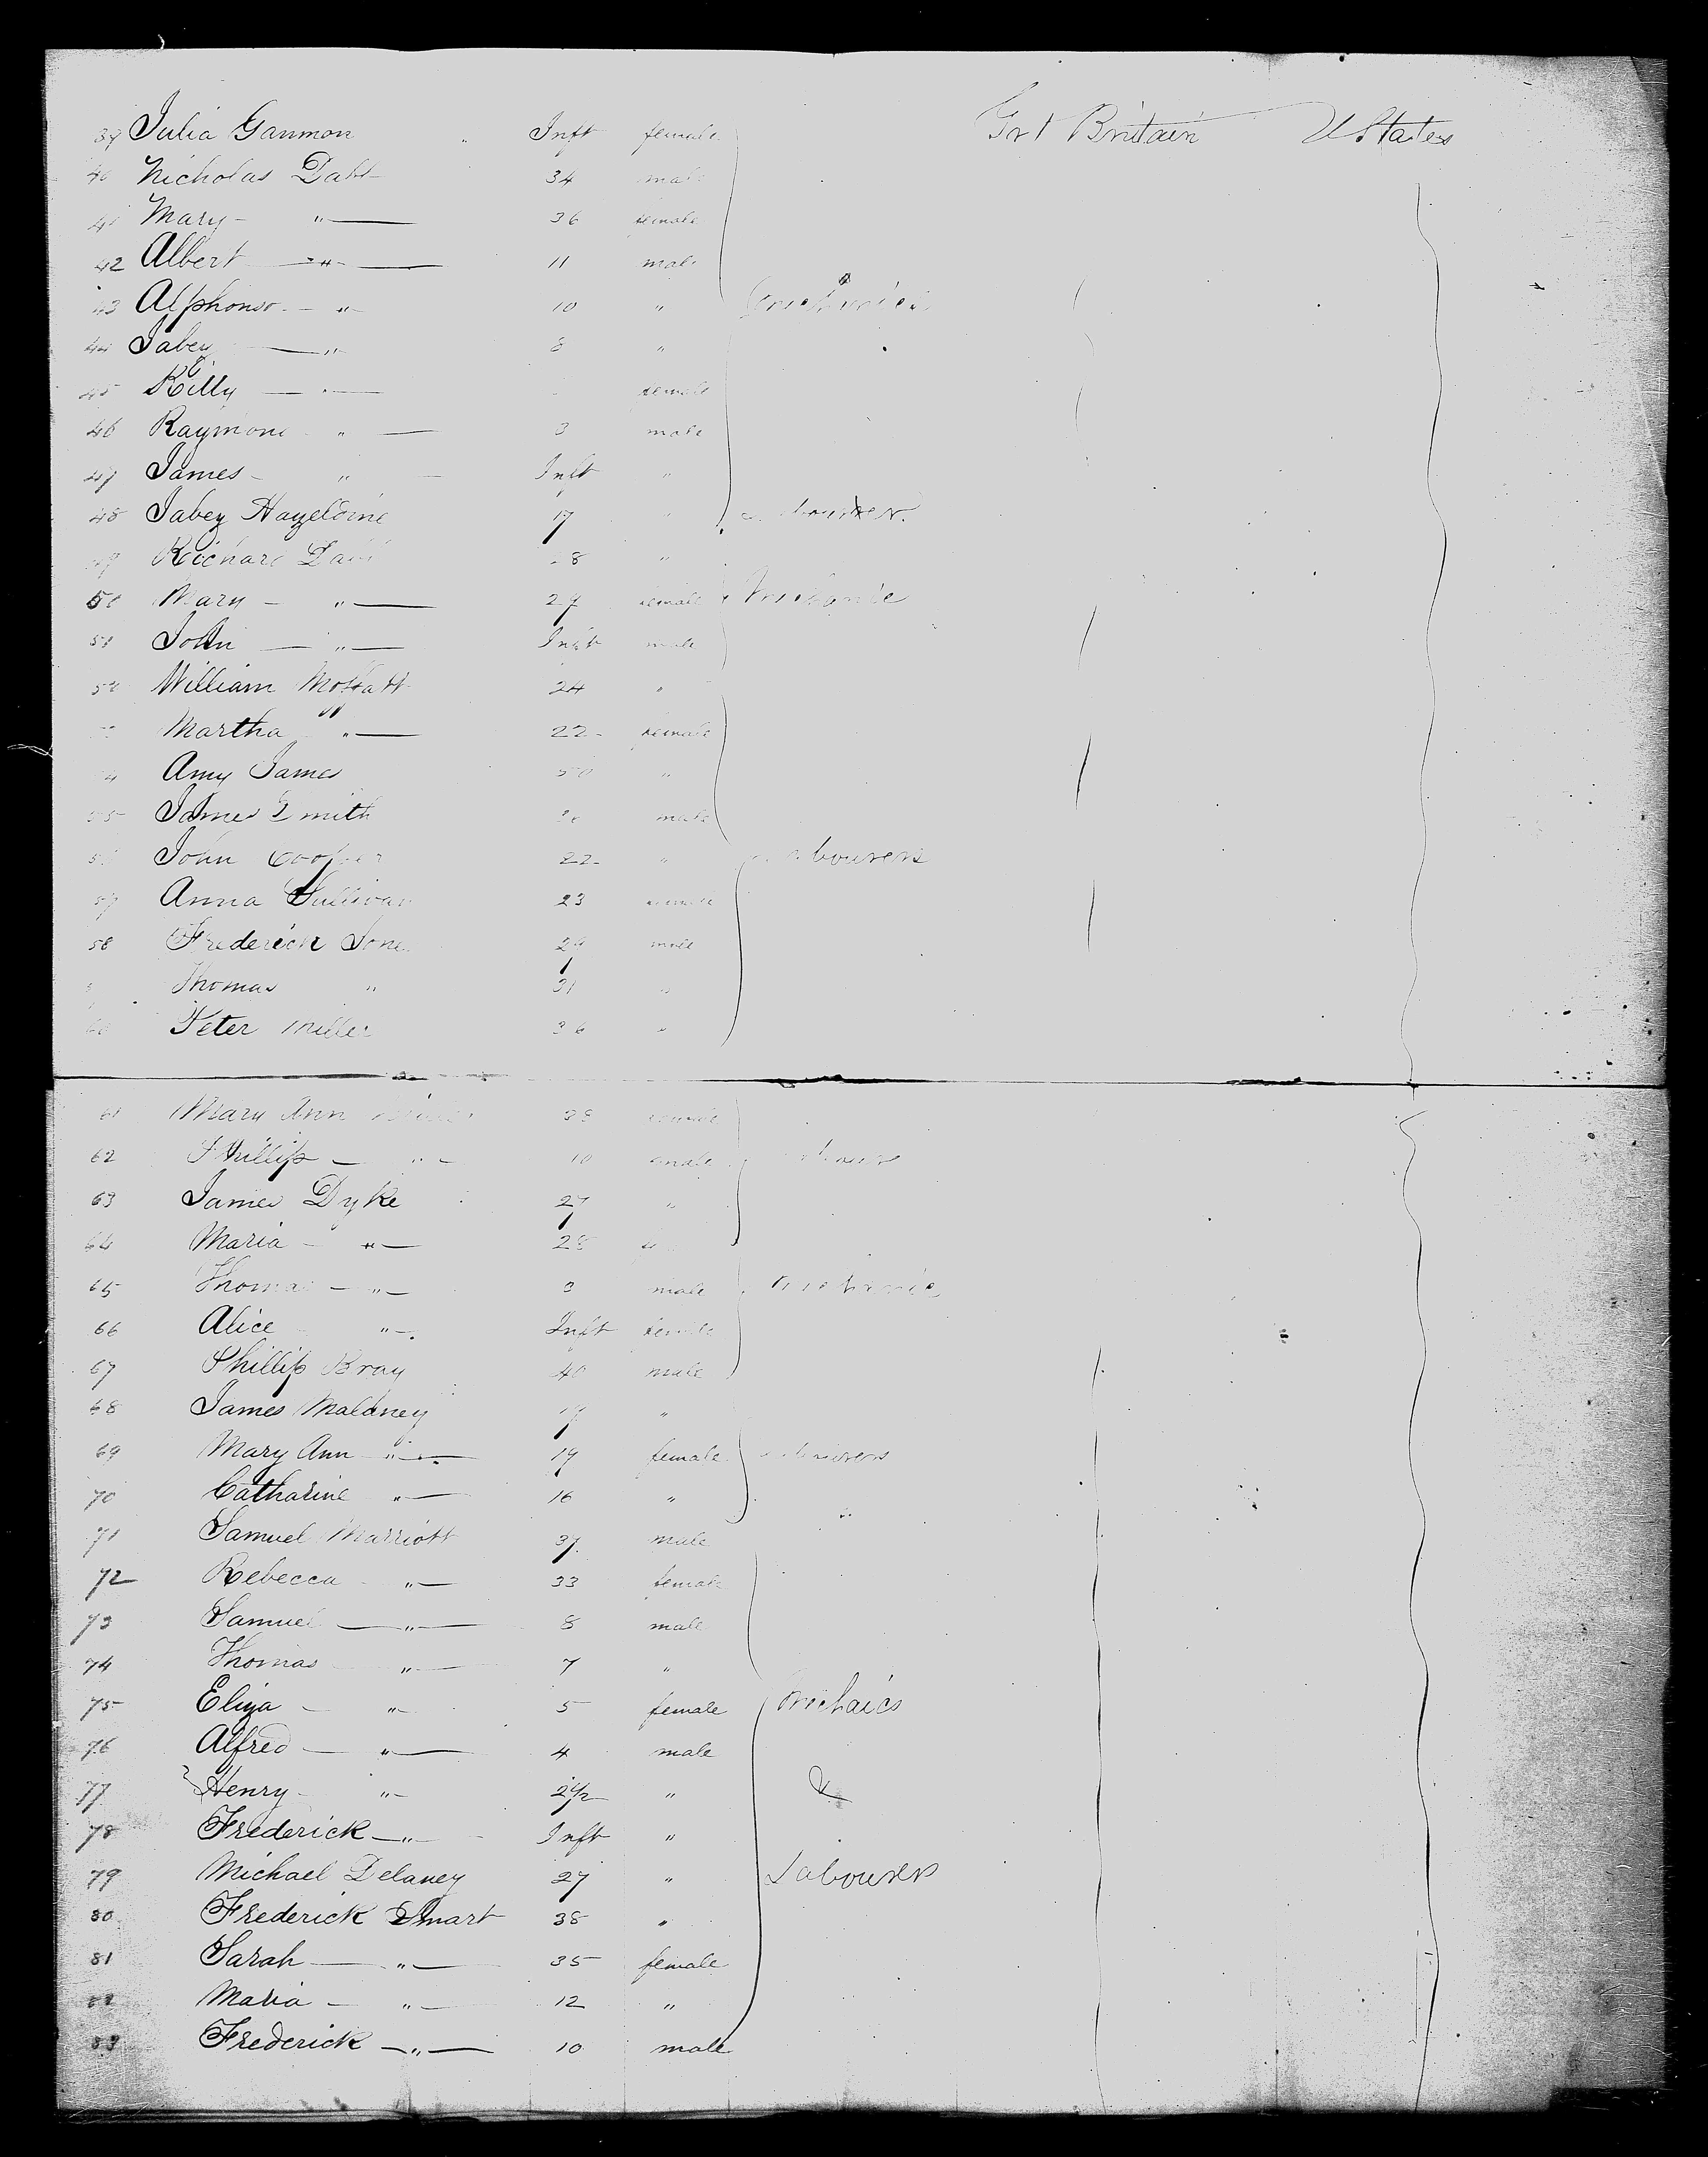 39 Julia Gammon Inft female Grt Britain U States
40 Nicholas Dabb 34 male
41 Mary - " — 36 female
42 Albert — " — 11 male
43 Alphonso - " - 10 "
44 Jabez — " 8 "
45 Killy — " — female
46 Raymond " — 3 male
47 James - " - Inft "
48 Jabez Hazeldine 17 " Labourer
49 Richard 28 "
50 Mary - " — 29 female Mechanic
51 John — " — Inft male
52 William Moffatt 24 "
Martha " — 22 female
54 Amy James 50 "
55 James Smith male
John Cooper 22 " Labourers
57 Anna Sullivan 23 female
58 Frederick Jone 29 male
Thomas " 31 "
60 Peter Miller 36 "
61 Mary Ann Miller 38 female
62 Phillip - " - 10 male
63 James Dyke 27 "
64 Maria - " — 28
65 Thomas - " - male Mechanic
66 Alice " - Inft female
67 Phillip Bray 40 male
68 James Maldney "
69 Mary Ann - " — 19 female Labourers
70 Catharine " — 16 "
71 Samuel Marriott 37 male
72 Rebecca - " — 33 female
73 Samuel — " — 8 male
74 Thomas " — 7 "
75 Eliza - " - 5 female Mechaics
76 Alfred — " — 4 male
77 Henry - " - 2 1/2 " &
78 Frederick — " - Inft "
79 Michael Delaney 27 " Labourers
80 Frederick Smart 38 "
81 Sarah — " — 35 female
82 Maria - " — 12 "
83 Frederick — " — 10 male